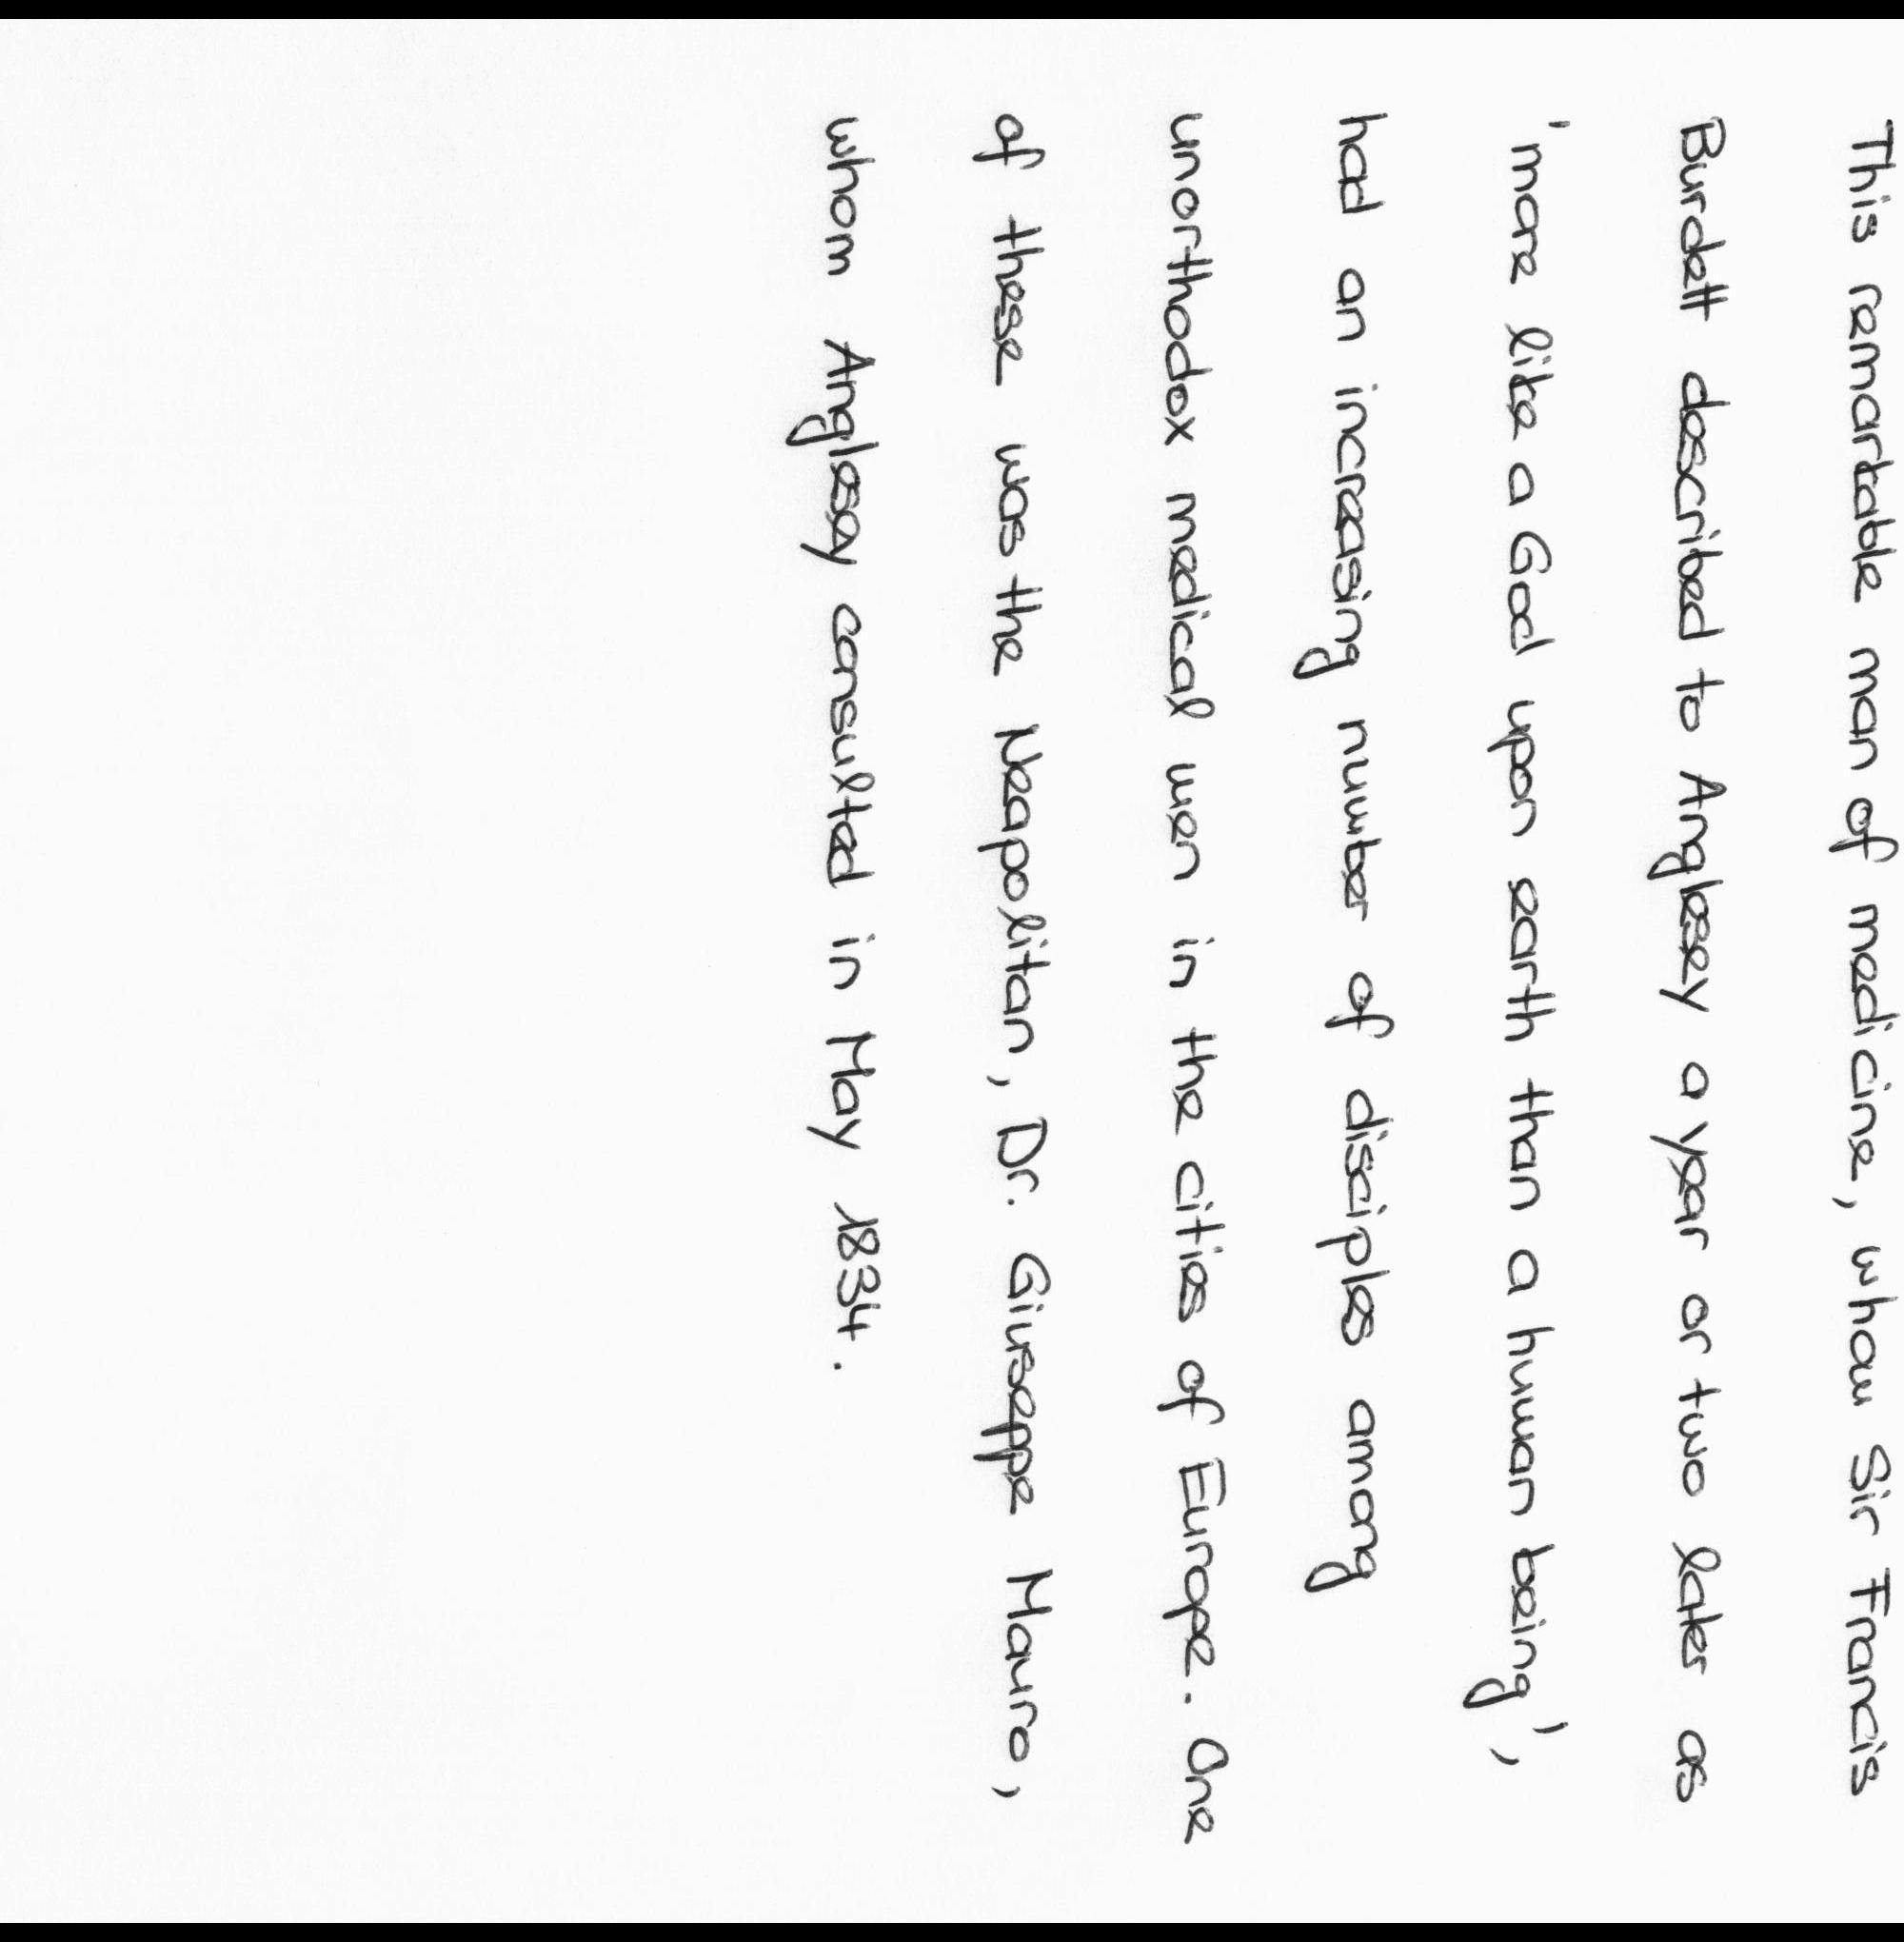 This remarkable man of medicine, whom Sir Francis
Burdett described to Anglesey a year or two later as
'more like a God upon earth than a human being',
had an increasing number of disciples among
unorthodox medical men in the cities of Europe. One
of these was the Neapolitan, Dr. Giuseppe Mauro,
whom Anglesey consulted in May 1834.